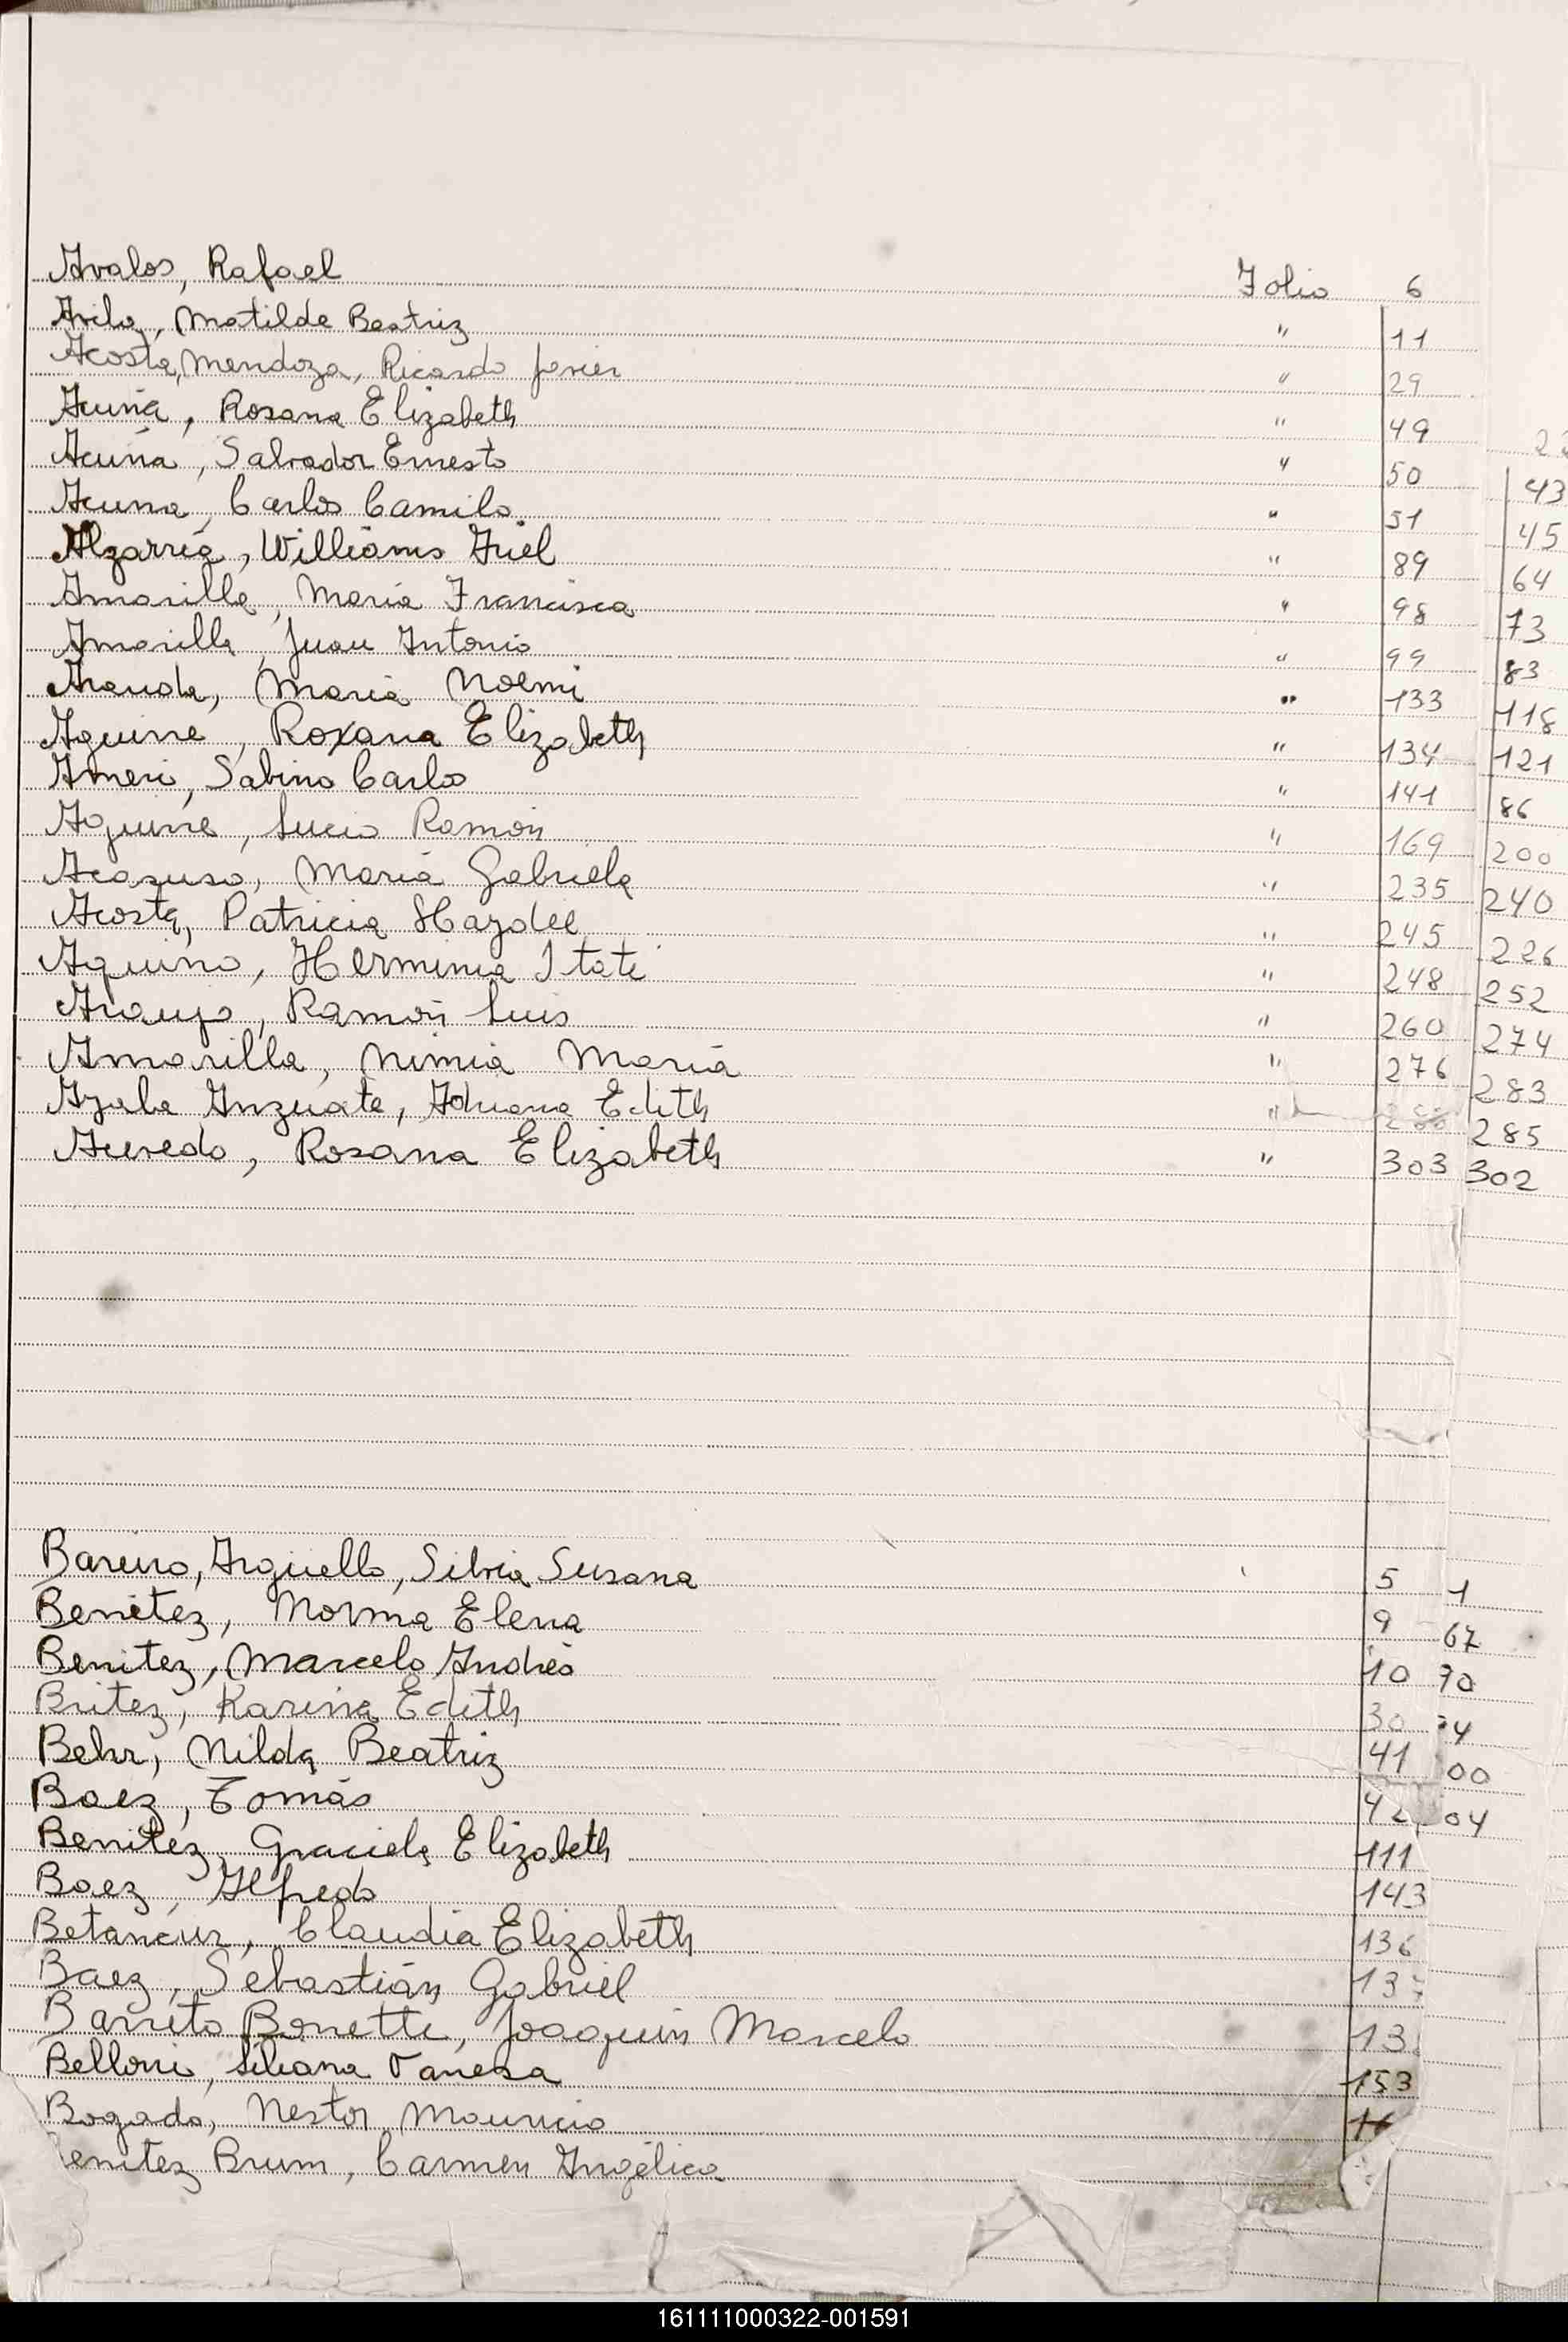 Avalos, Rafael Folio 6
Avila, Matilde Beatriz " 11
Acosta, Mendoza, Ricardo Javier " 29
Acuña, Rosana Elizabeth " 49
Acuña, Salvador Ernesto " 50 43
Acuna, Carlos Camilo " 51 45
Algarría, Williams Ariel " 89 64
Amarilla, María Francisca " 98 73
Amarilla, Juan Antonio " 99 83
Aranda, María Noemi " 133 118
Aguirre, Roxana Elizabeth " 134 121
Ameri, Sabino Carlos " 141 86
Aguirre, Lucio Ramón " 169 200
Acasuso, María Gabriela " 235 240
Acosta, Patricia Haydee " 245 226
Aquino, Herminia Itati " 248 252
Araujo, Ramón Luis " 260 274
Amarilla, Nimia María " 276 283
Ayala Anzuate, Adriana Edith " 285
Acevedo, Rosana Elizabeth " 303 302
Bareiro, Argüello, Silvia Susana 5 1
Benítez, Norma Elena 9 67
Benitez, Marcelo Andrés 10 70
Britez, Karina Edith 30
Behr, Nilda Beatriz 41 00
Baez, Tomás 42 04
Benitez, Graciela Elizabeth 111
Baez, Alfredo 143
Betancur, Claudia Elizabeth 136
Baez, Sebastián Gabriel
Barreto Bonetti, Joaquín Marcelo
Belloni, Liliana Vanesa 153
Bogado, Nestor Mauricio
enitez Brum, Carmen Angélica
161111000322-001591